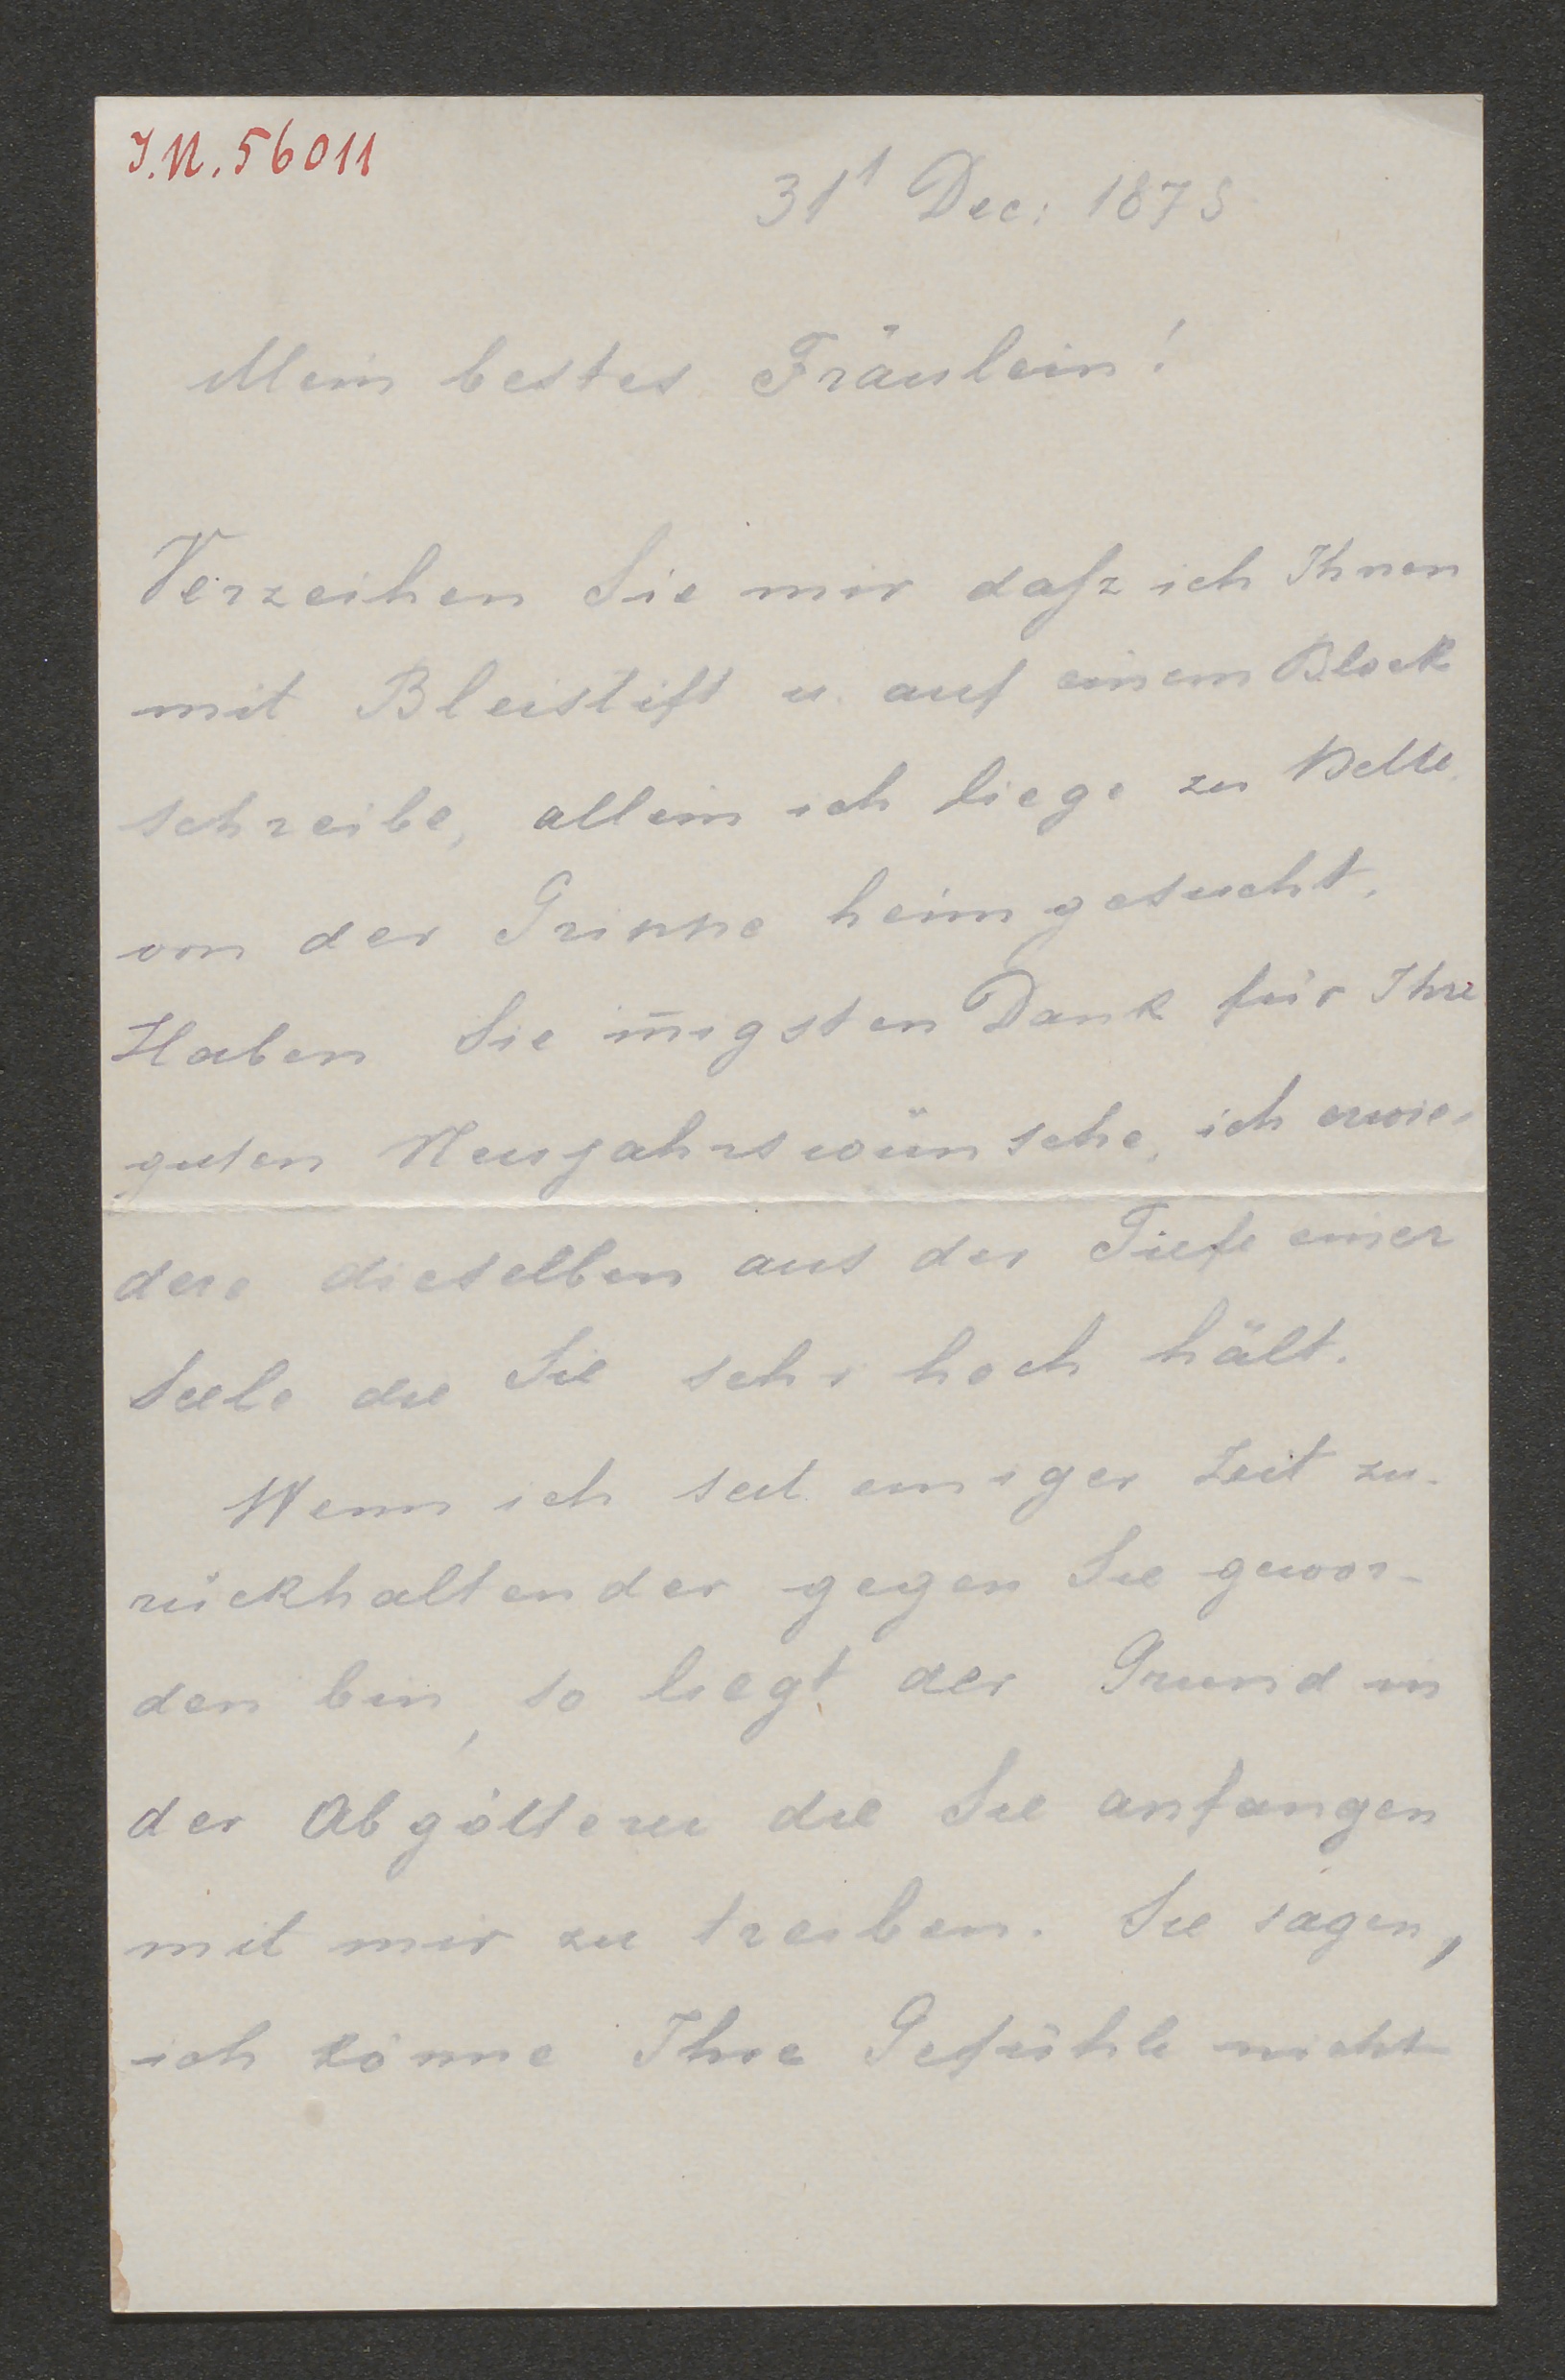 I.N. 56011
31¹ Dec: 1875
Mein bestes Fräulein!
Verzeihen Sie mir daſz ich Ihnen
mit Bleistift u. auf einem Block
schreibe, allein ich liege zu Bette
von der Grippe heimgesucht.
Haben Sie in̄igsten Dank für Ihre
guten Neujahrswünsche, ich erwie-
dere dieselben aus der Tiefe einer
Seele die Sie sehr hoch hält.
Wenn ich seit einiger Zeit zu-
rückhaltender gegen Sie gewor-
den bin, so liegt der Grund in
der Abgötterei die Sie anfangen
mit mir zu treiben. Sie sagen,
ich könne Ihre Gefühle nicht